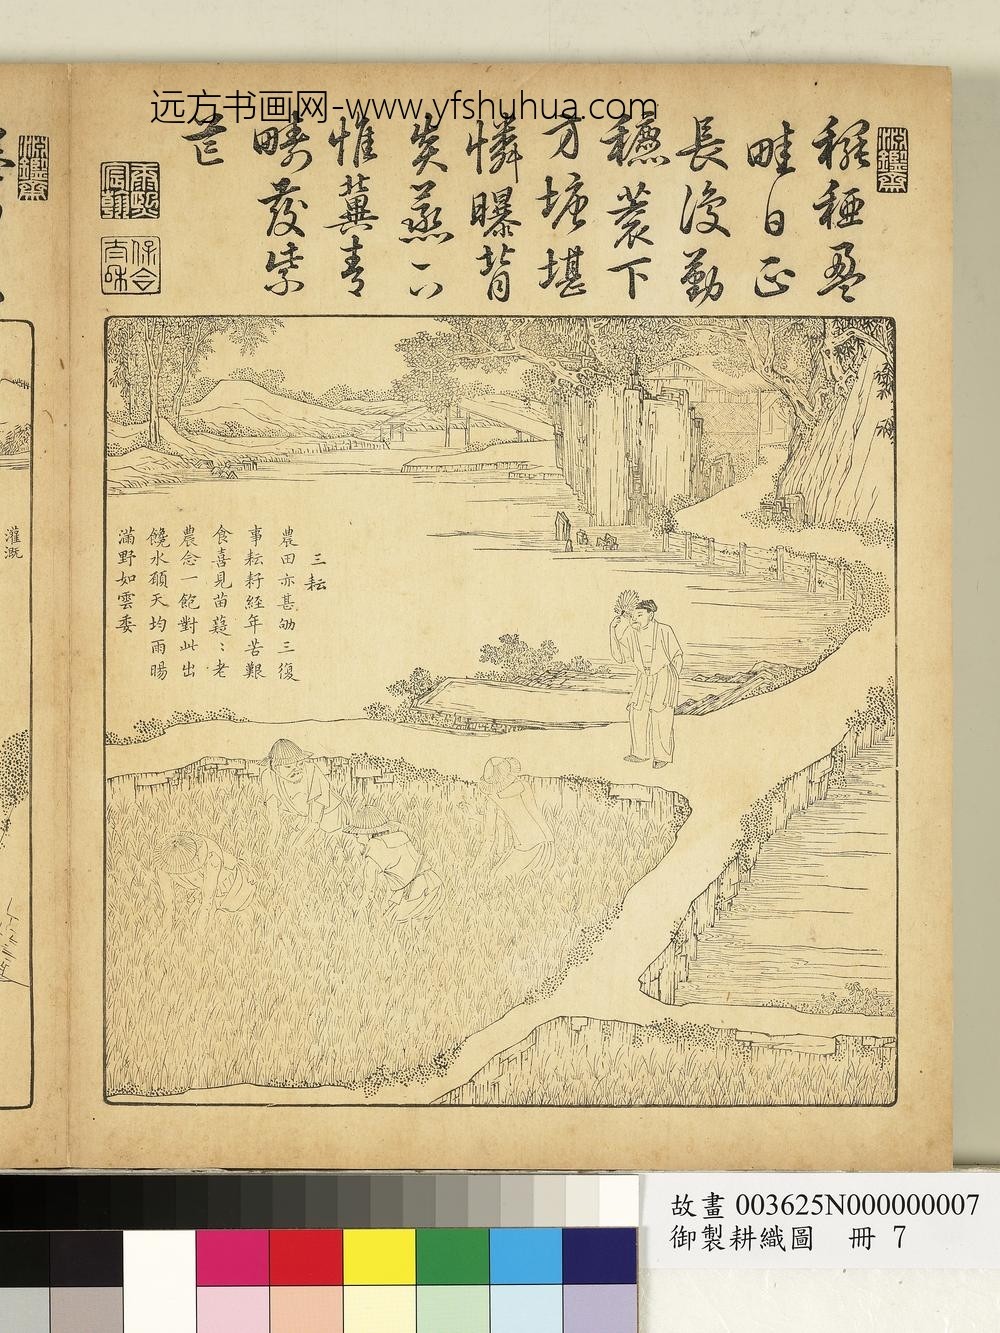 远方书画网-www.yfshuhua.com
淵鑒齋
穠穉盈
畦日正
長復勤
穮蓘下
方塘堪
憐曝背
炎蒸下
惟冀青
疇發紫
芒
康熙宸翰
保合太和
三耘
農田亦甚劬三復
事耘耔經年苦艱
食喜見苗薿〻老
農念一飽對此出
饞水願天均雨暘
滿野如雲委
灌溉
故畫 003625N000000007
御製耕織圖 冊 7